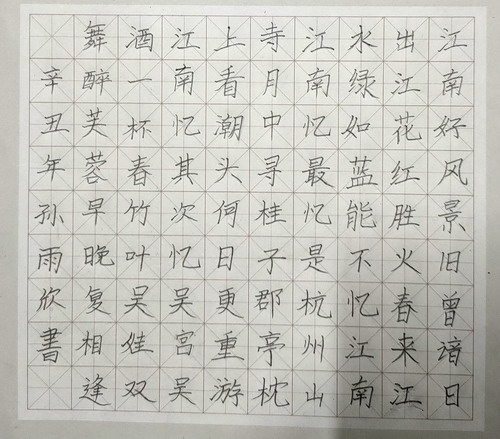 江南好风景旧曾谙日
出江花红胜火春来江
水绿如蓝能不忆江南
江南忆最忆是杭州山
寺月中寻桂子郡亭枕
上看潮头何日更重游
江南忆其次忆吴宫吴
酒一杯春竹叶吴娃双
舞醉芙蓉早晚复相逢
辛丑年孙雨欣書